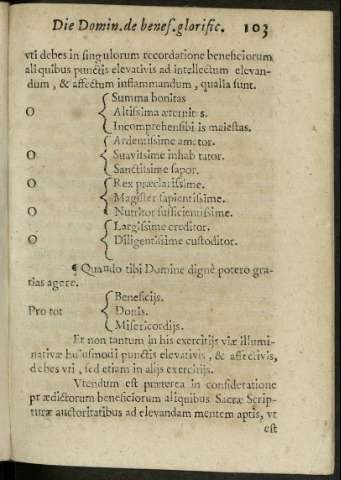 Die Domin. de benef. glorific. 103
vti debes in singulorum recordatione beneficiorum
aliquibus punctis elevativis ad intellectum elevan-
dum, & affectum inflammandum, qualia sunt.
Summa bonitas
O Altissima æternitas.
Incomprehensibilis maiestas.
Ardentissime amator.
O Suavissime inhabitator.
Sanctissime sapor.
O Rex præclarissime.
Magister sapientissime.
O Nutritor sufficientissime.
Largissime creditor.
O Diligentissime custoditor.
¶ Quando tibi Domine dignè potero gra-
tias agere.
Beneficijs.
Pro tot Donis.
Misericordijs.
Et non tantum in his exercitijs viæ illumi-
nativæ huiusmodi punctis elevativis, & affectivis,
debes vti, sed etiam in alijs exercitijs.
Vtendum est præterea in consideratione
prædictorum beneficiorum aliquibus Sacræ Scrip-
turæ auctoritatibus ad elevandam mentem aptis, vt
est